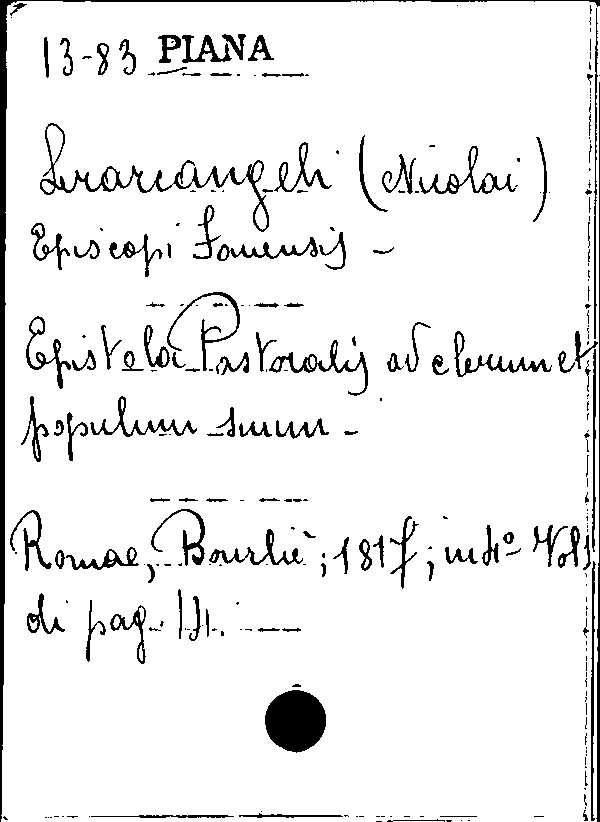 13-83 PIANA
Serarcangeli (Nicolai)
Episcopi Fanensis -
Epistola Pastoralis ad clerum et
populum suum -
Romae, Bourliè; 1817; in 4º Vol 1
di pag. 14.